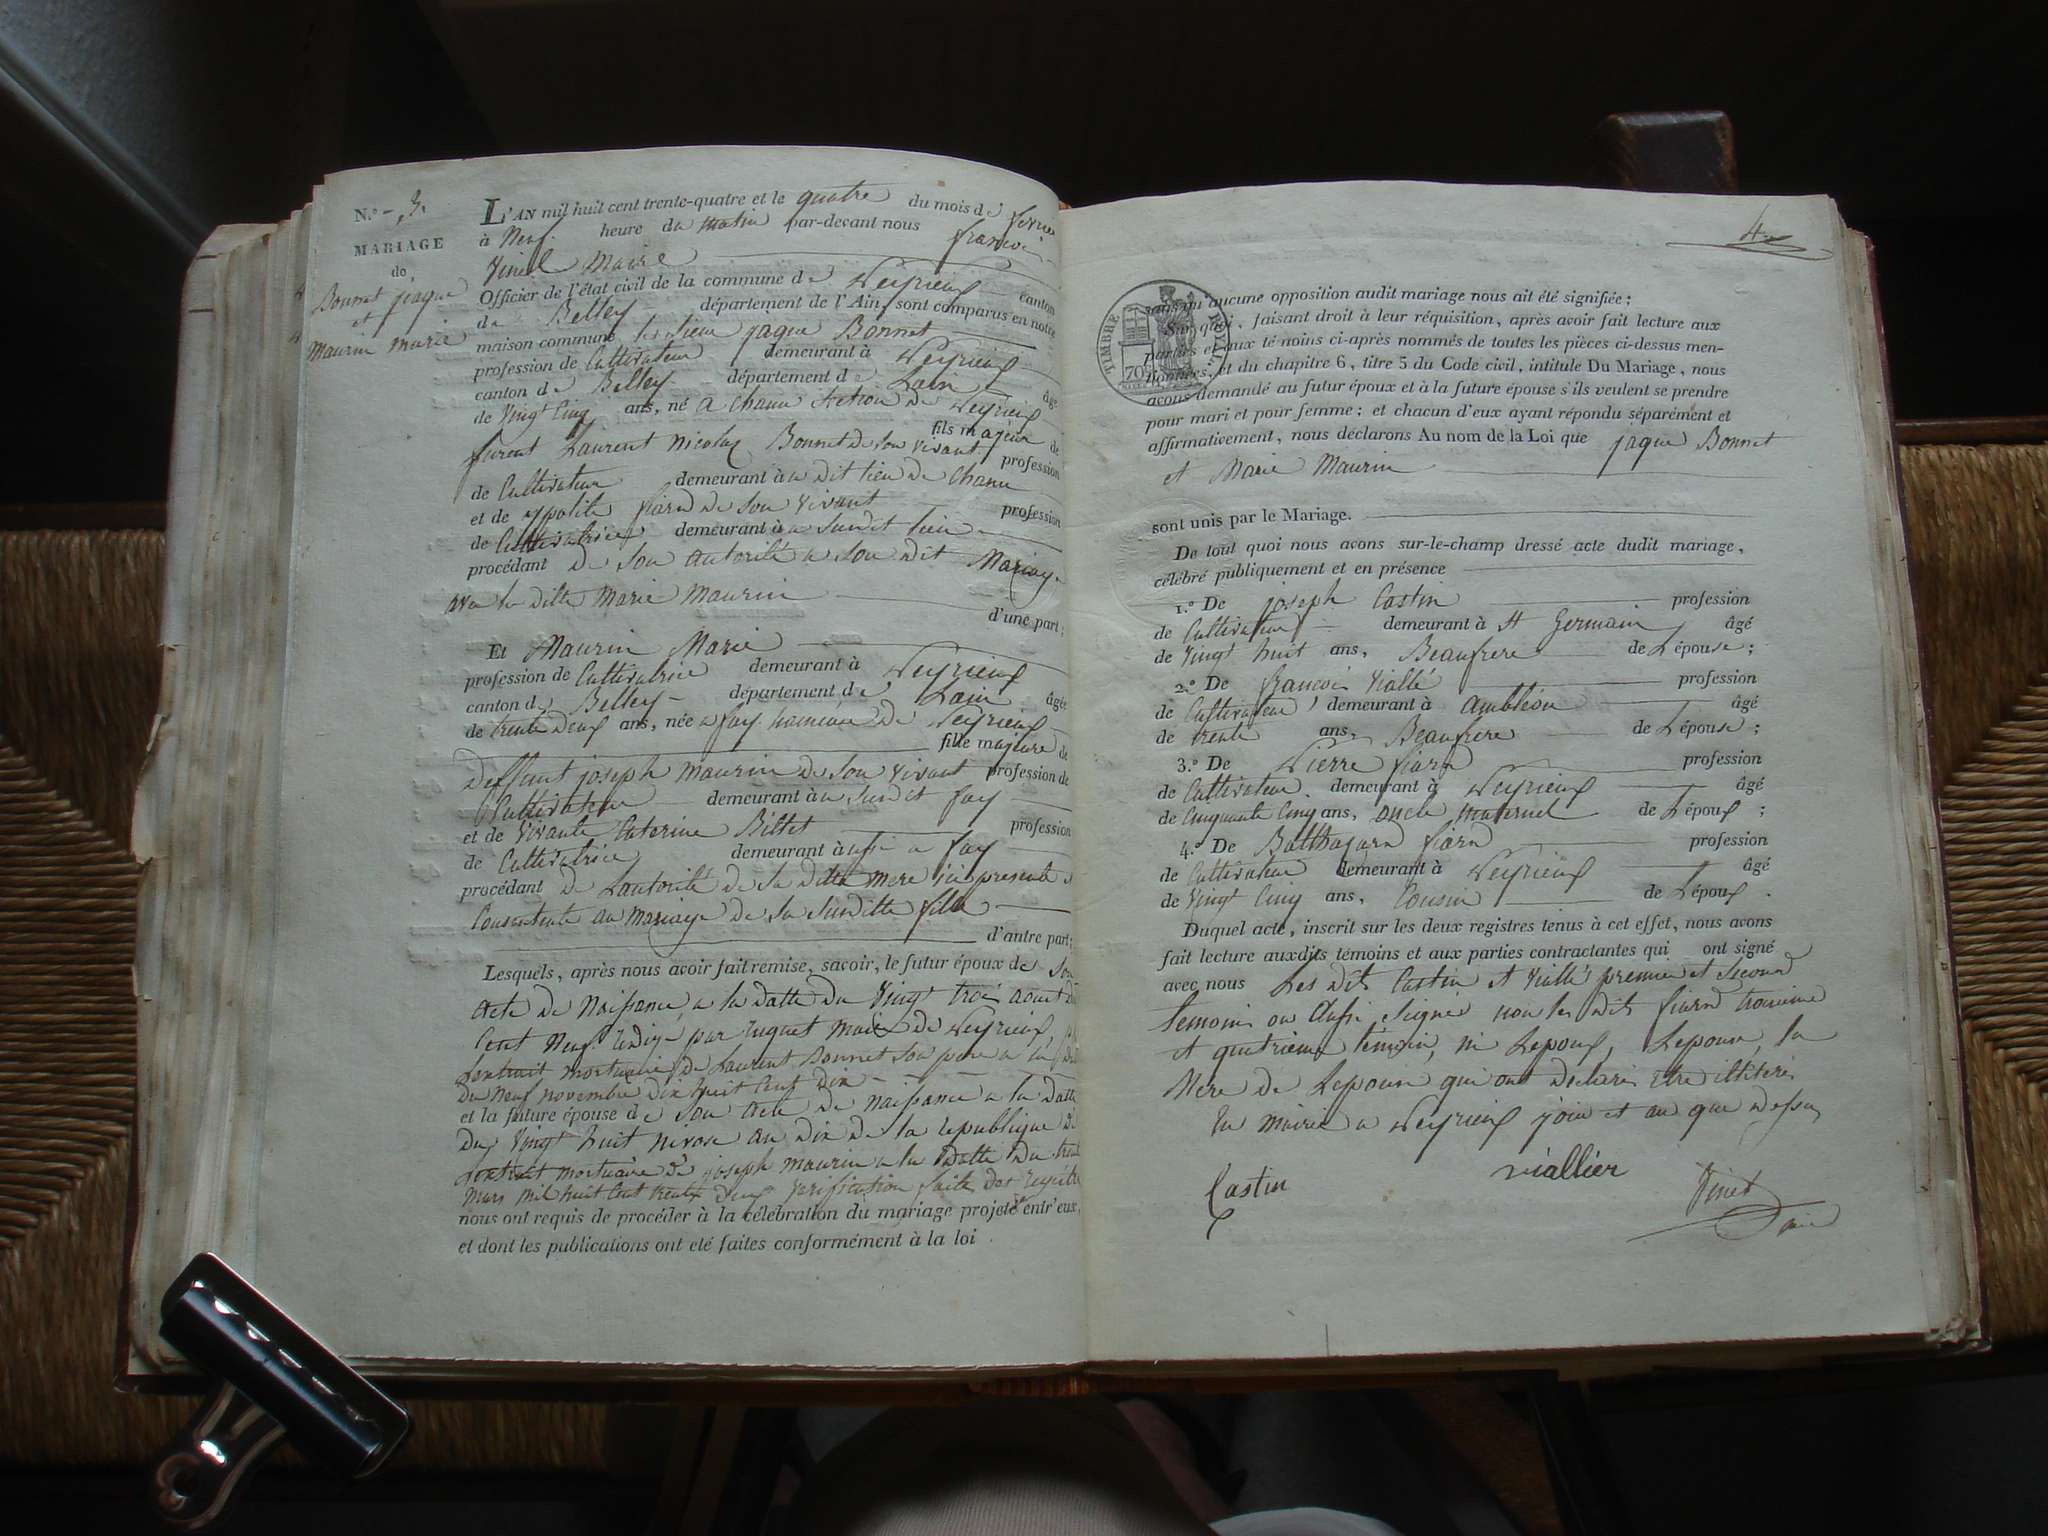 N.º 3.
MARIAGE
de
Bonnet jaque
et
Maurin marie
L'AN mil huit cent trente-quatre et le quatre du mois de fevrier
à Neuf heure du matin par-devant nous francoi
Vinet Maire
Officier de l'état civil de la commune de Peyrieux canton
de Belley département de l'Ain, sont comparus en notre
maison commune le sieur jaque Bonnet
profession de Cultivateur demeurant à Peyrieux
canton de Belley département de Lain âgé
de Vingt Cinq ans, né a chanu section de Peyrieux
fils majeur de
furent Laurent nicolas Bonnet de son vivant profession
de Cultivateur demeurant à u dit lieu de Chanu
et de ypolite fiard de son vivant profession
de Cultivatrice demeurant à u susdit lieu
procédant de son autorité a son dit Mariage
avec la ditte Marie Maurin
d'une part;
Et Maurin Marie
profession de Cultivatrice demeurant à Peyrieux
canton de Belley département de Lain âgée
de trente deux ans, née a fay hameau de Peyrieux
fille majeure de
deffunt joseph maurin de son vivant profession de
Cultivateur demeurant à u susdit fay
et de vivante Caterine Billet profession
de Cultivatrice demeurant à ussi a fay
procédant de Lautorité de sa ditte mere ici presente et
Consentente au mariage de sa susditte fille
d'autre part;
Lesquels, après nous avoir fait remise, savoir, le futur époux de son
acte de Naissance, a la datte du Vingt troi aout dix
Cent Neuf Redigé par huguet maire de Peyrieux,
Lextrait mortuaire de Laurent Bonnet son pere a la datte
du neuf novembre dix huit Cent dix
et la future épouse de son acte de naissance a la datte
du Vingt huit nivose an dix de la republique
Lextrait mortuaire de joseph maurin a la datte du trente
mars mil huit Cent trente deux Verification faite des registres
nous ont requis de procéder à la célébration du mariage projeté entr'eux,
et dont les publications ont été faites conformément à la loi
4
TIMBRE ROYAL
70
sans qu'aucune opposition audit mariage nous ait été signifiée;
Sur quoi, faisant droit à leur réquisition, après avoir fait lecture aux
parties et aux témoins ci-après nommés de toutes les pièces ci-dessus men-
tionnées, et du chapitre 6, titre 5 du Code civil, intitule Du Mariage, nous
avons demandé au futur époux et à la future épouse s'ils veulent se prendre
pour mari et pour femme; et chacun d'eux ayant répondu séparément et
affirmativement, nous déclarons Au nom de la Loi que jaque Bonnet
et Marie Maurin
sont unis par le Mariage.
De tout quoi nous avons sur-le-champ dressé acte dudit mariage,
célébré publiquement et en présence
1.º De joseph Castin profession
de Cultivateur demeurant à St Germain âgé
de Vingt huit ans, Beaufrere de Lépouse;
2.º De francoi Viallé profession
de Cultivateur demeurant à Ambléon âgé
de trente ans, Beaufrere de Lépouse;
3.º De Pierre fiard profession
de Cultivateur demeurant à Peyrieux âgé
de Cinquante Cinq ans, oncle maternel de Lépoux;
4.º De Balthazard fiard profession
de Cultivateur demeurant à Peyrieux âgé
de Vingt Cinq ans, Cousin de Lépoux.
Duquel acte, inscrit sur les deux registres tenus à cet effet, nous avons
fait lecture auxdits témoins et aux parties contractantes qui ont signé
avec nous Les dits Castin et Viallé premier et second
temoins on Aussi Signés non les dits fiard troisieme
et quatrieme temoin, ni Lepoux, Lepouse, la
Mere de Lepouse qui ont déclarés Etre illitérés
En mairie a Peyrieux jour et an que dessus
Castin
viallier
Vinet
maire